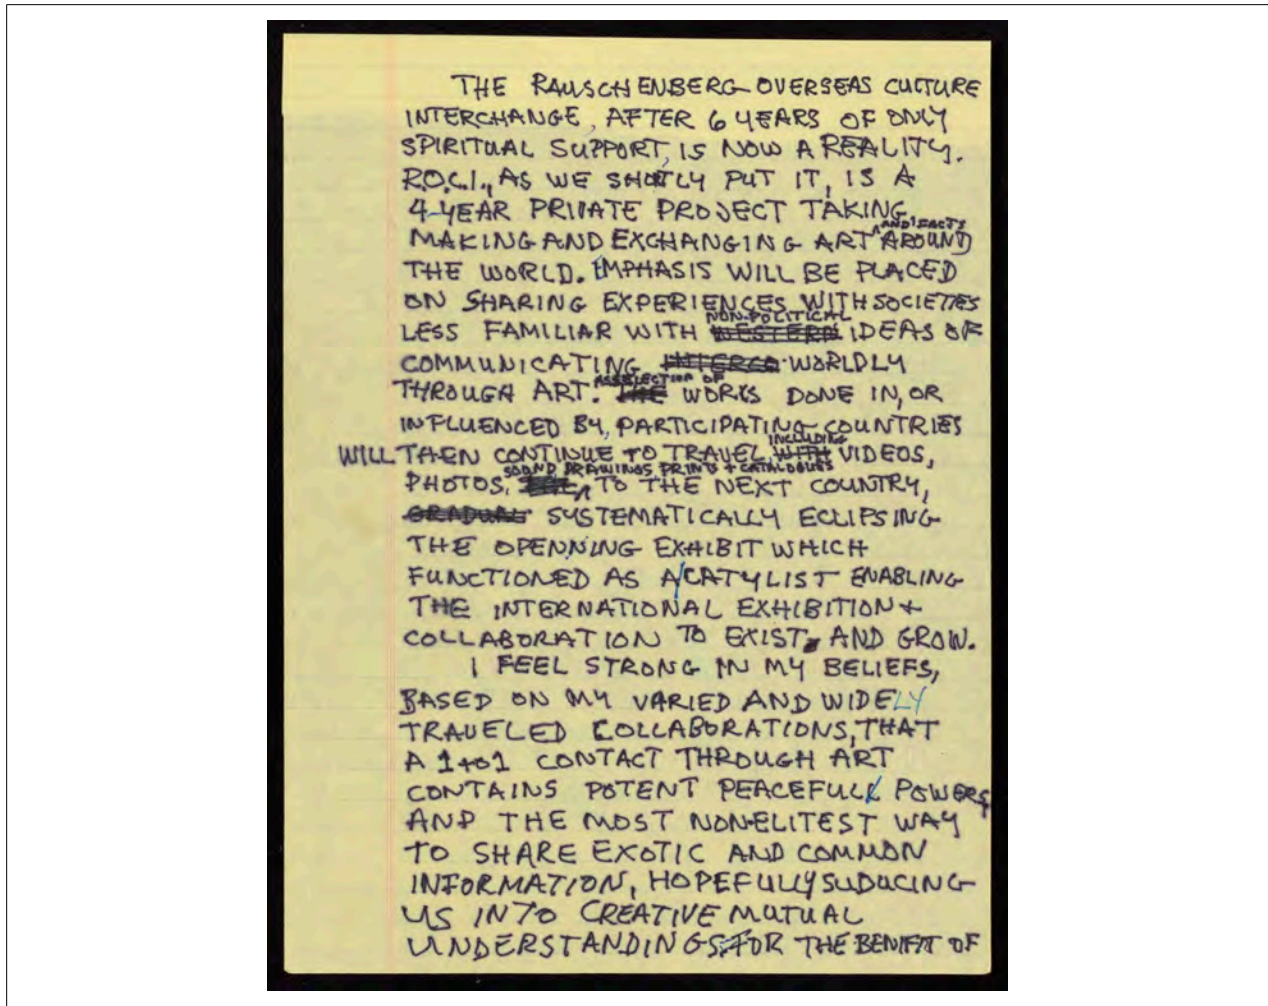 THE RAUSCHENBERG OVERSEAS CULTURE
INTERCHANGE, AFTER 6 YEARS OF ONLY
SPIRITUAL SUPPORT, IS NOW A REALITY.
R.O.C.I., AS WE SHOTLY PUT IT, IS A
4-YEAR PRIVATE PROJECT TAKING,
MAKING AND EXCHANGING ART AND FACTS AROUND
THE WORLD. EMPHASIS WILL BE PLACED
ON SHARING EXPERIENCES WITH SOCIETIES
LESS FAMILIAR WITH NON-POLITICAL WESTERN IDEAS OF
COMMUNICATING INTERCO WORLDLY
THROUGH ART. A SELECTION OF THE WORKS DONE IN, OR
INFLUENCED BY, PARTICIPATING COUNTRIES
WILL THEN CONTINUE TO TRAVEL, INCLUDING WITH VIDEOS,
PHOTOS, SOUND DRAWINGS PRINTS + CATALOGUES TO THE NEXT COUNTRY,
GRADUAL SYSTEMATICALLY ECLIPSING
THE OPENNING EXHIBIT WHICH
FUNCTIONED AS A CATYLIST ENABLING
THE INTERNATIONAL EXHIBITION +
COLLABORATION TO EXIST AND GROW.
I FEEL STRONG IN MY BELIEFS,
BASED ON MY VARIED AND WIDELY
TRAVELED COLLABORATIONS, THAT
A 1 to 1 CONTACT THROUGH ART
CONTAINS POTENT PEACEFULL POWERS
AND THE MOST NON-ELITEST WAY
TO SHARE EXOTIC AND COMMON
INFORMATION, HOPEFULLY SUDUCING
US INTO CREATIVE MUTUAL
UNDERSTANDINGS FOR THE BENIFIT OF